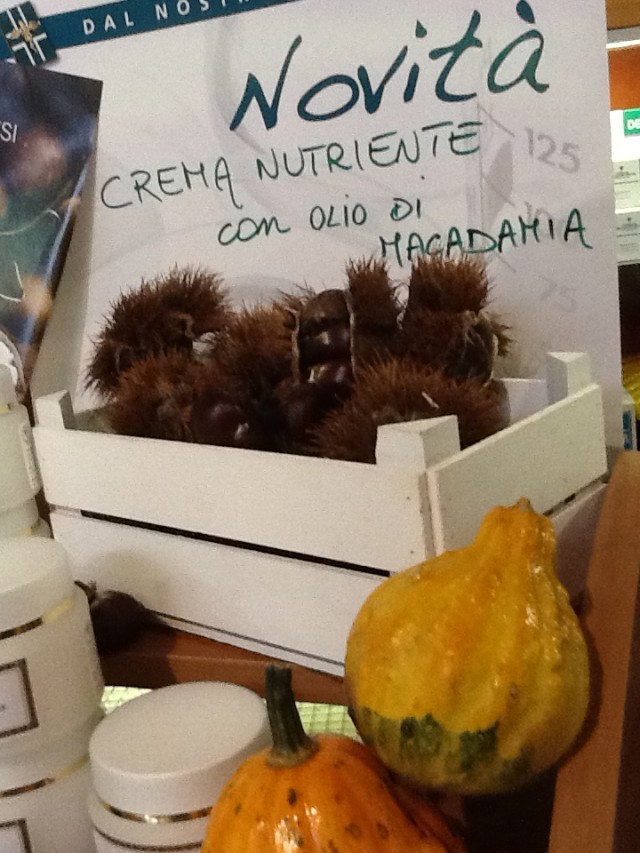 DAL NOST
SI
Novità
CREMA NUTRIENTE
con OLIO DI
MACADAMIA
125
75